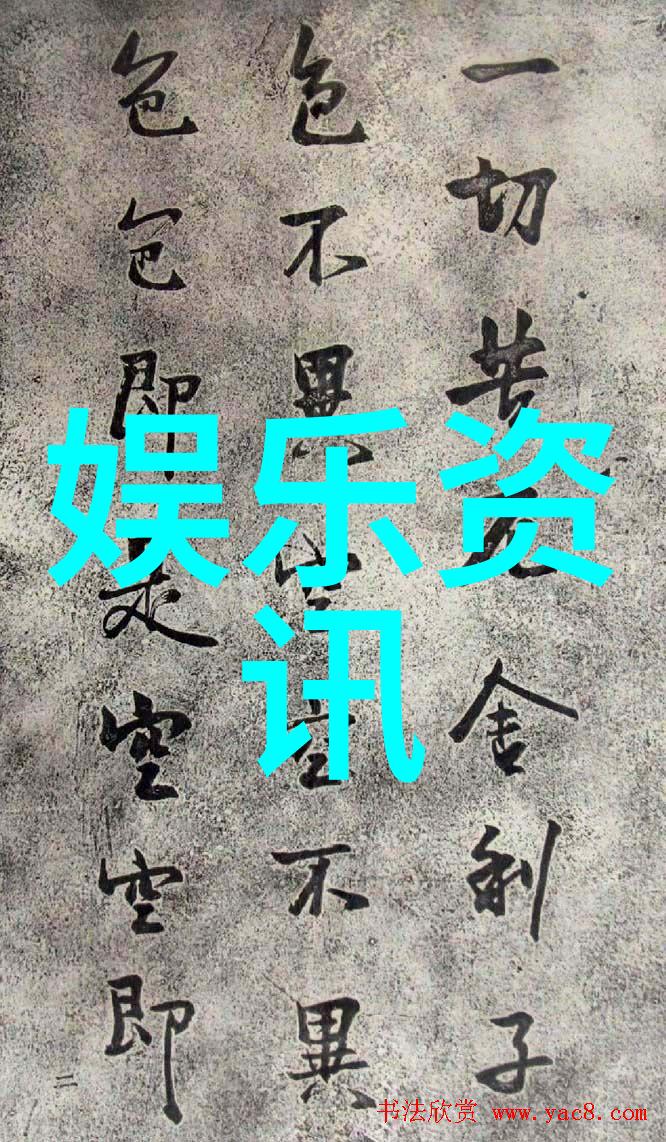 一切苦厄舍利子
色不異空空不異
色色即是空空即
二
娱乐资
讯
书法欣赏 www.yac8.com